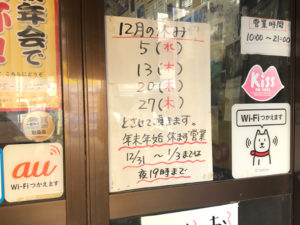 12月の休み
5(水)
13(木)
20(木)
27(木)
とさせて頂きます。
年末年始 休まず営業
12/31 〜 1/3までは
夜19時まで
営業時間
10:00〜21:00
Kiss
Wi-Fiつかえます
au
Wi-Fiつかえます
年会で